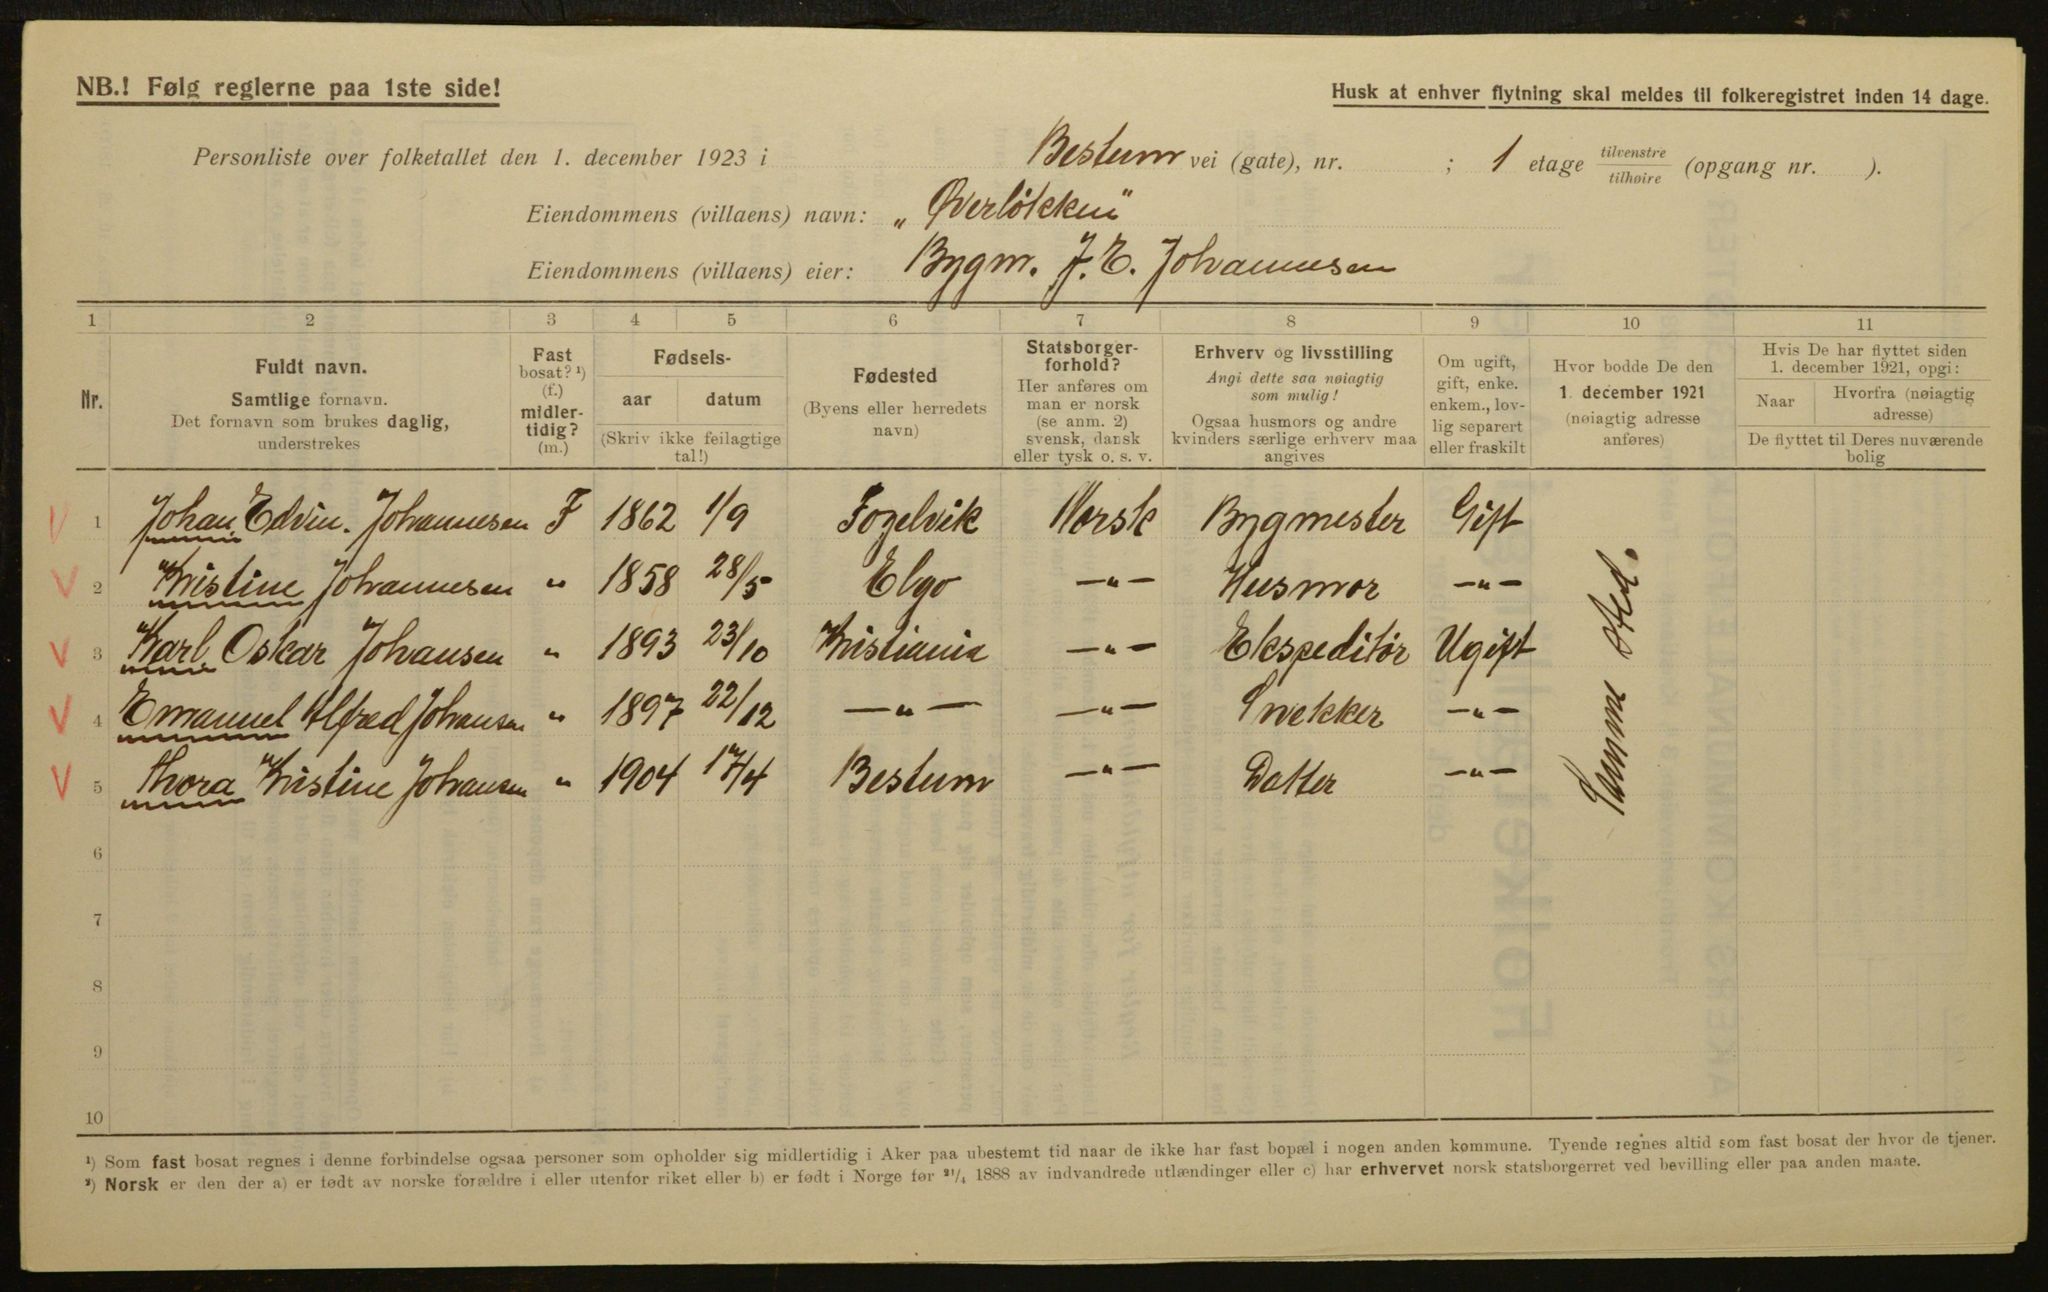 NB.! Følg reglerne paa 1ste side!
Husk at enhver flytning skal meldes til folkeregistret inden 14 dage.
Personliste over folketallet den 1. december 1923 i Bestum vei (gate), nr. ; 1 etage tilvenstre tilhøire (opgang nr. ).
Eiendommens (villaens) navn: „Øverløkken"
Eiendommens (villaens) eier: Bygm. J. E. Johannesen
1 2 3 4 5 6 7 8 9 10 11
Nr.
Fuldt navn.
Samtlige fornavn.
Det fornavn som brukes daglig,
understrekes
Fast
bosat? ¹)
(f.)
midler-
tidig?
(m.)
Fødsels-
aar datum
(Skriv ikke feilagtige
tal!)
Fødested
(Byens eller herredets
navn)
Statsborger-
forhold?
Her anføres om
man er norsk
(se anm. 2)
svensk, dansk
eller tysk o. s. v.
Erhverv og livsstilling
Angi dette saa nøiagtig
som mulig!
Ogsaa husmors og andre
kvinders særlige erhverv maa
angives
Om ugift,
gift, enke.
enkem., lov-
lig separert
eller fraskilt
Hvor bodde De den
1. december 1921
(nøiagtig adresse
anføres)
Hvis De har flyttet siden
1. december 1921, opgi:
Naar
Hvorfra (nøiagtig
adresse)
De flyttet til Deres nuværende
bolig
1 Johan Edvin. Johannesen F 1862 1/9 Fogelvik Norsk Bygmester Gift
2 Kristine Johannesen " 1858 28/5 Elgo —"— Husmor —"—
3 Karl Oskar Johansen " 1893 23/10 Kristiania —"— Ekspeditør Ugift
4 Emanuel Alfred Johansen " 1897 22/12 —"— —"— Snekker —"—
5 Thora Kristine Johansen " 1904 17/4 Bestum —"— Datter —"—
Samme sted.
6
7
8
9
10
¹) Som fast bosat regnes i denne forbindelse ogsaa personer som opholder sig midlertidig i Aker paa ubestemt tid naar de ikke har fast bopæl i nogen anden kommune. Tyende regnes altid som fast bosat der hvor de tjener.
²) Norsk er den der a) er født av norske forældre i eller utenfor riket eller b) er født i Norge før ²¹/₄ 1888 av indvandrede utlændinger eller c) har erhvervet norsk statsborgerret ved bevilling eller paa anden maate.